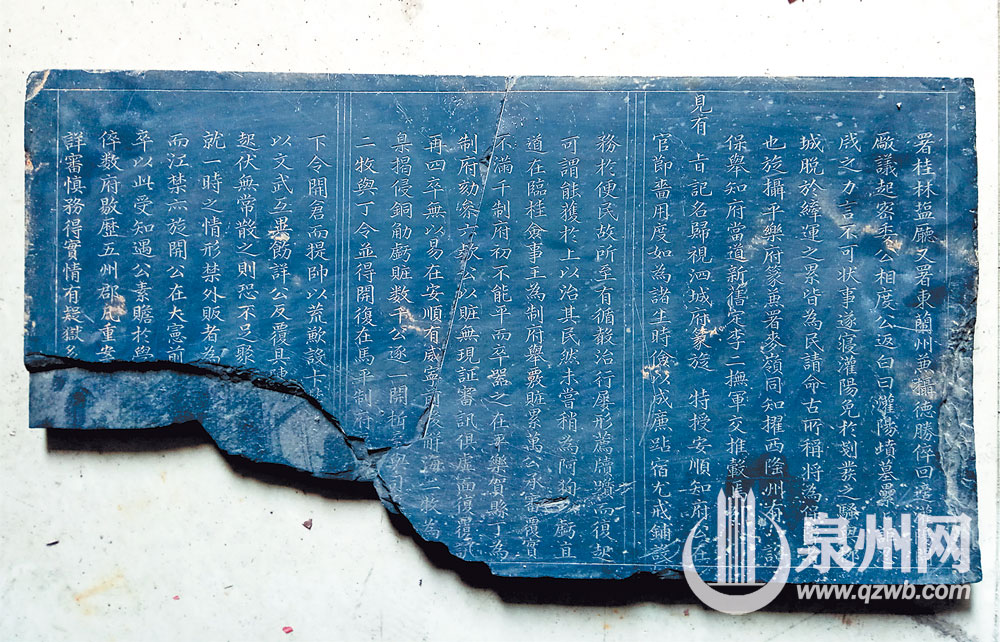 署桂林塩廳又署東蘭州兼攝德勝倅回
廠議起密委公相度公返白曰灌陽墳墓壘
成之力言不可狀事遂寢灌陽免於剗
城脫於縴運之累皆為民請命古所稱將為
也旋攝平樂府篆兼署麥嶺同知擢西隆州
保舉知府當道新舊李二撫軍交推轂
見有
旨記名歸視泗城府篆旋 特授安順知府
官節嗇用度如為諸生時儉以成廉站宿尤戒鋪
務於便民故所至有循聲治行屢形薦牘而復
可謂能獲於上以治其民然未嘗稍為阿
道在臨桂僉事王為制府舉覈賍累萬公承審覆實
不滿千制府初不能平而卒器之在平樂賀縣丁為
制府劾參六款公以賍無現証審訊俱虛面復
再四卒無以易在安順有威寧前後
臬揭侵銅勛虧賍数千公逐一開
二牧與丁令並得開復在馬平制府
下令開倉而提帥以荒歉設卡
以文武互畢飭詳公反覆具
起伏無常散之則恐不足
就一時之情形禁外販者為
而江禁亦旋開公在大憲前
卒以此受知遇公素贍於學
倅数府敭歷五州郡凡重案
詳審慎務得實情有疑獄
泉州网
www.qzwb.com